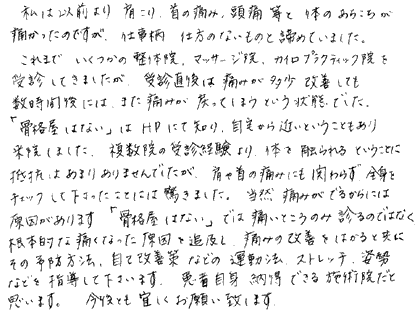 私は以前より肩こり、首の痛み、頭痛等と体のあちこちが
痛かったのですが、仕事柄 仕方のないものと諦めていました。
これまで いくつかの整体院、マッサージ院、カイロプラクティック院を
受診してきましたが、受診直後は痛みが多少改善しても
数時間後には、また痛みが戻ってしまうという状態でした。
「骨格屋はない」はHPにて知り、自宅から近いということもあり
来院しました。複数院の受診経験より、体を触られるということに
抵抗はあまりありませんでしたが、肩や首の痛みにも関わらず全身を
チェックして下さったことには驚きました。当然 痛みがでるからには
原因があります「骨格屋はない」では痛いところのみ診るのではなく
根本的な痛くなった原因を追及し、痛みの改善をはかると共に
その予防方法、自己改善策などの運動法、ストレッチ、姿勢
などを指導して下さいます。患者自身 納得できる施術院だと
思います。 今後とも宜しくお願い致します。